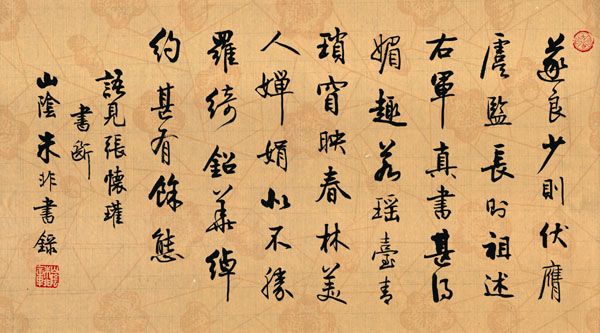 遂良少則伏膺
虞監長則祖述
右軍真書甚得
媚趣若瑶臺青
瑣窅映春林美
人嬋娟似不勝
羅綺鉛華綽
約甚有餘態
語見張懷瓘
書斷
山陰朱非書錄